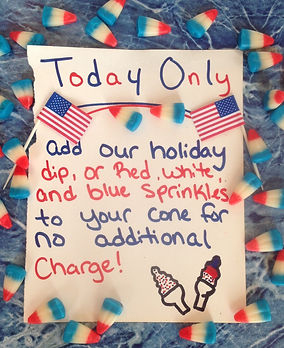 Today Only
add our holiday
dip, or Red, white,
and blue Sprinkles
to your cone for
no additional
Charge!